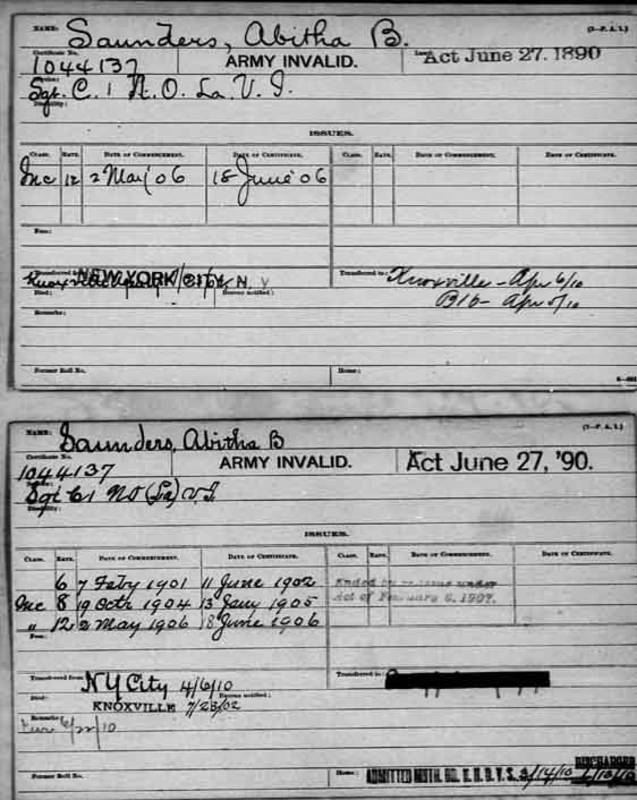 NAME: Saunders, Abitha B. (3—P. A. I.)
Certificate No. 1044137 ARMY INVALID. Act June 27. 1890
Sgt. C. 1 N. O. La. V. I.
Disability:
ISSUES.
CLASS. RATE. DATE OF COMMENCEMENT. DATE OF CERTIFICATE. CLASS. RATE. DATE OF COMMENCEMENT. DATE OF CERTIFICATE.
Inc 12 2 May '06 18 June '06
Fee:
Transferred NEW YORK CITY N. Y Transferred to: Knoxville - Apr 6/10
Died: (Bureau notified:)
Remarks:
Former Roll No. Home:
NAME: Saunders, Abitha B (3—P. A. I.)
Certificate No. 1044137 ARMY INVALID. Act June 27, '90.
Sgt C 1 NO (La) V. I.
Disability:
ISSUES.
CLASS. RATE. DATE OF COMMENCEMENT. DATE OF CERTIFICATE. CLASS. RATE. DATE OF COMMENCEMENT. DATE OF CERTIFICATE.
6 7 Feby 1901 11 June 1902 Ended by reissue under
Inc 8 19 Octr 1904 13 Jany 1905 Act of February 6, 1907.
" 12 2 May 1906 18 June 1906
Fee:
Transferred from N Y City 4/6/10 Transferred to:
Died: (Bureau notified:)
KNOXVILLE 7/23/02
Remarks:
/10
Former Roll No. Home: ADMITTED 2/14/10 DISCHARGED